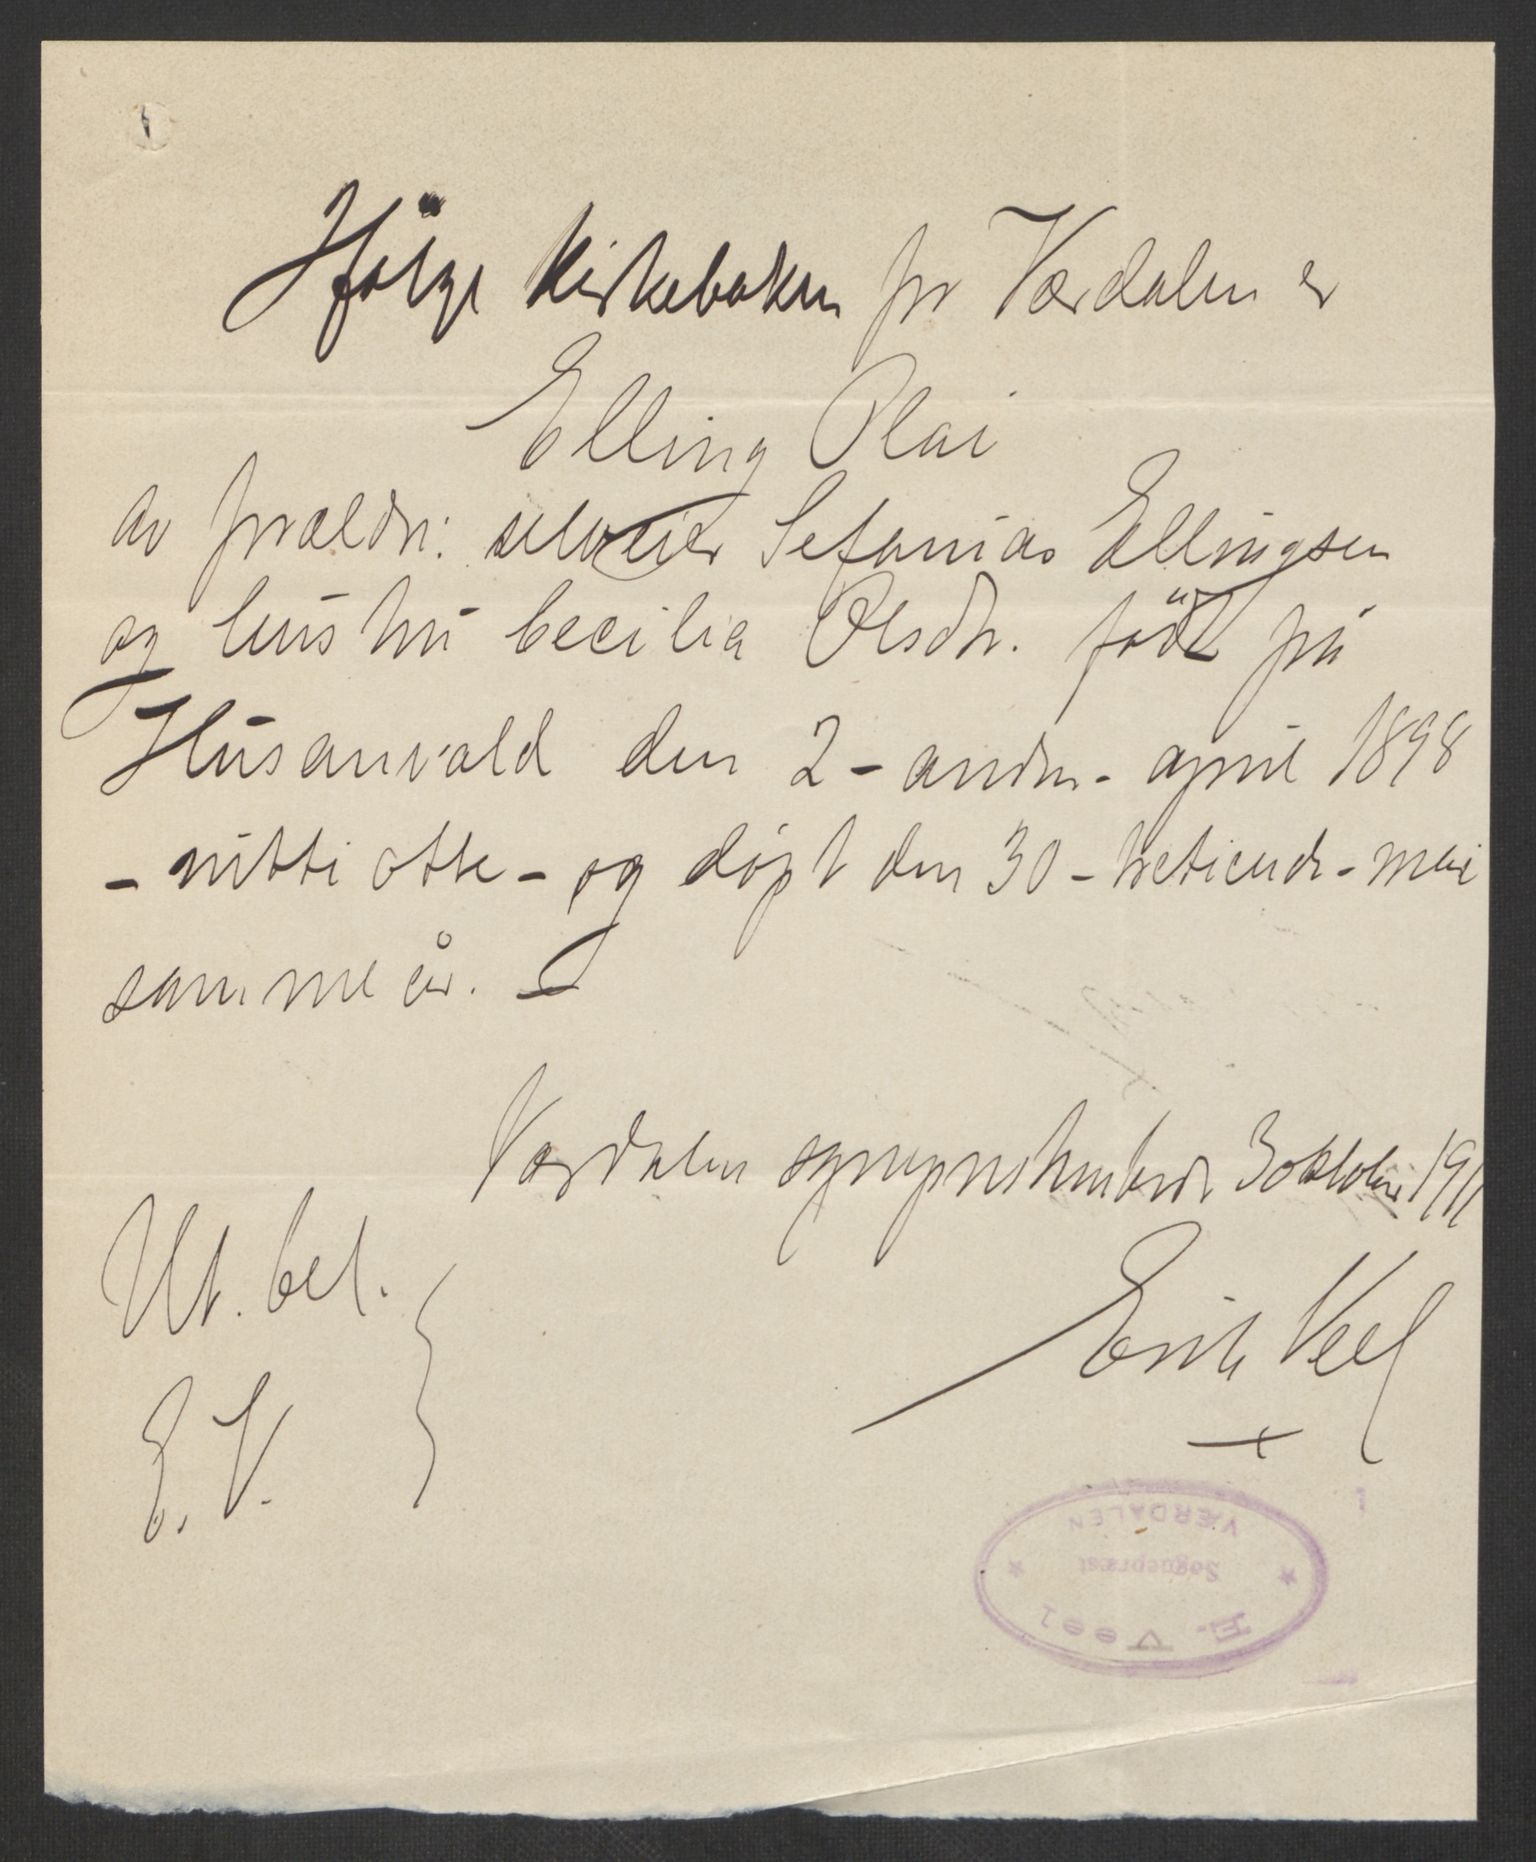 Ifølge kirkeboken for Værdalen er
Elling Olai
av forældre: selveier Sefanias Ellingsen
og hustru Cecilia Olsdtr. født på
Husanvald den 2 - anden - april 1898
- nitti otte - og døpt den 30 - tretiende - mai
samme år.
Værdalen sogneprestembede 3 oktober 1911
Erik Veel
Ut. bet.
E. V.
E. Veel
Sogneprest
VÆRDALEN